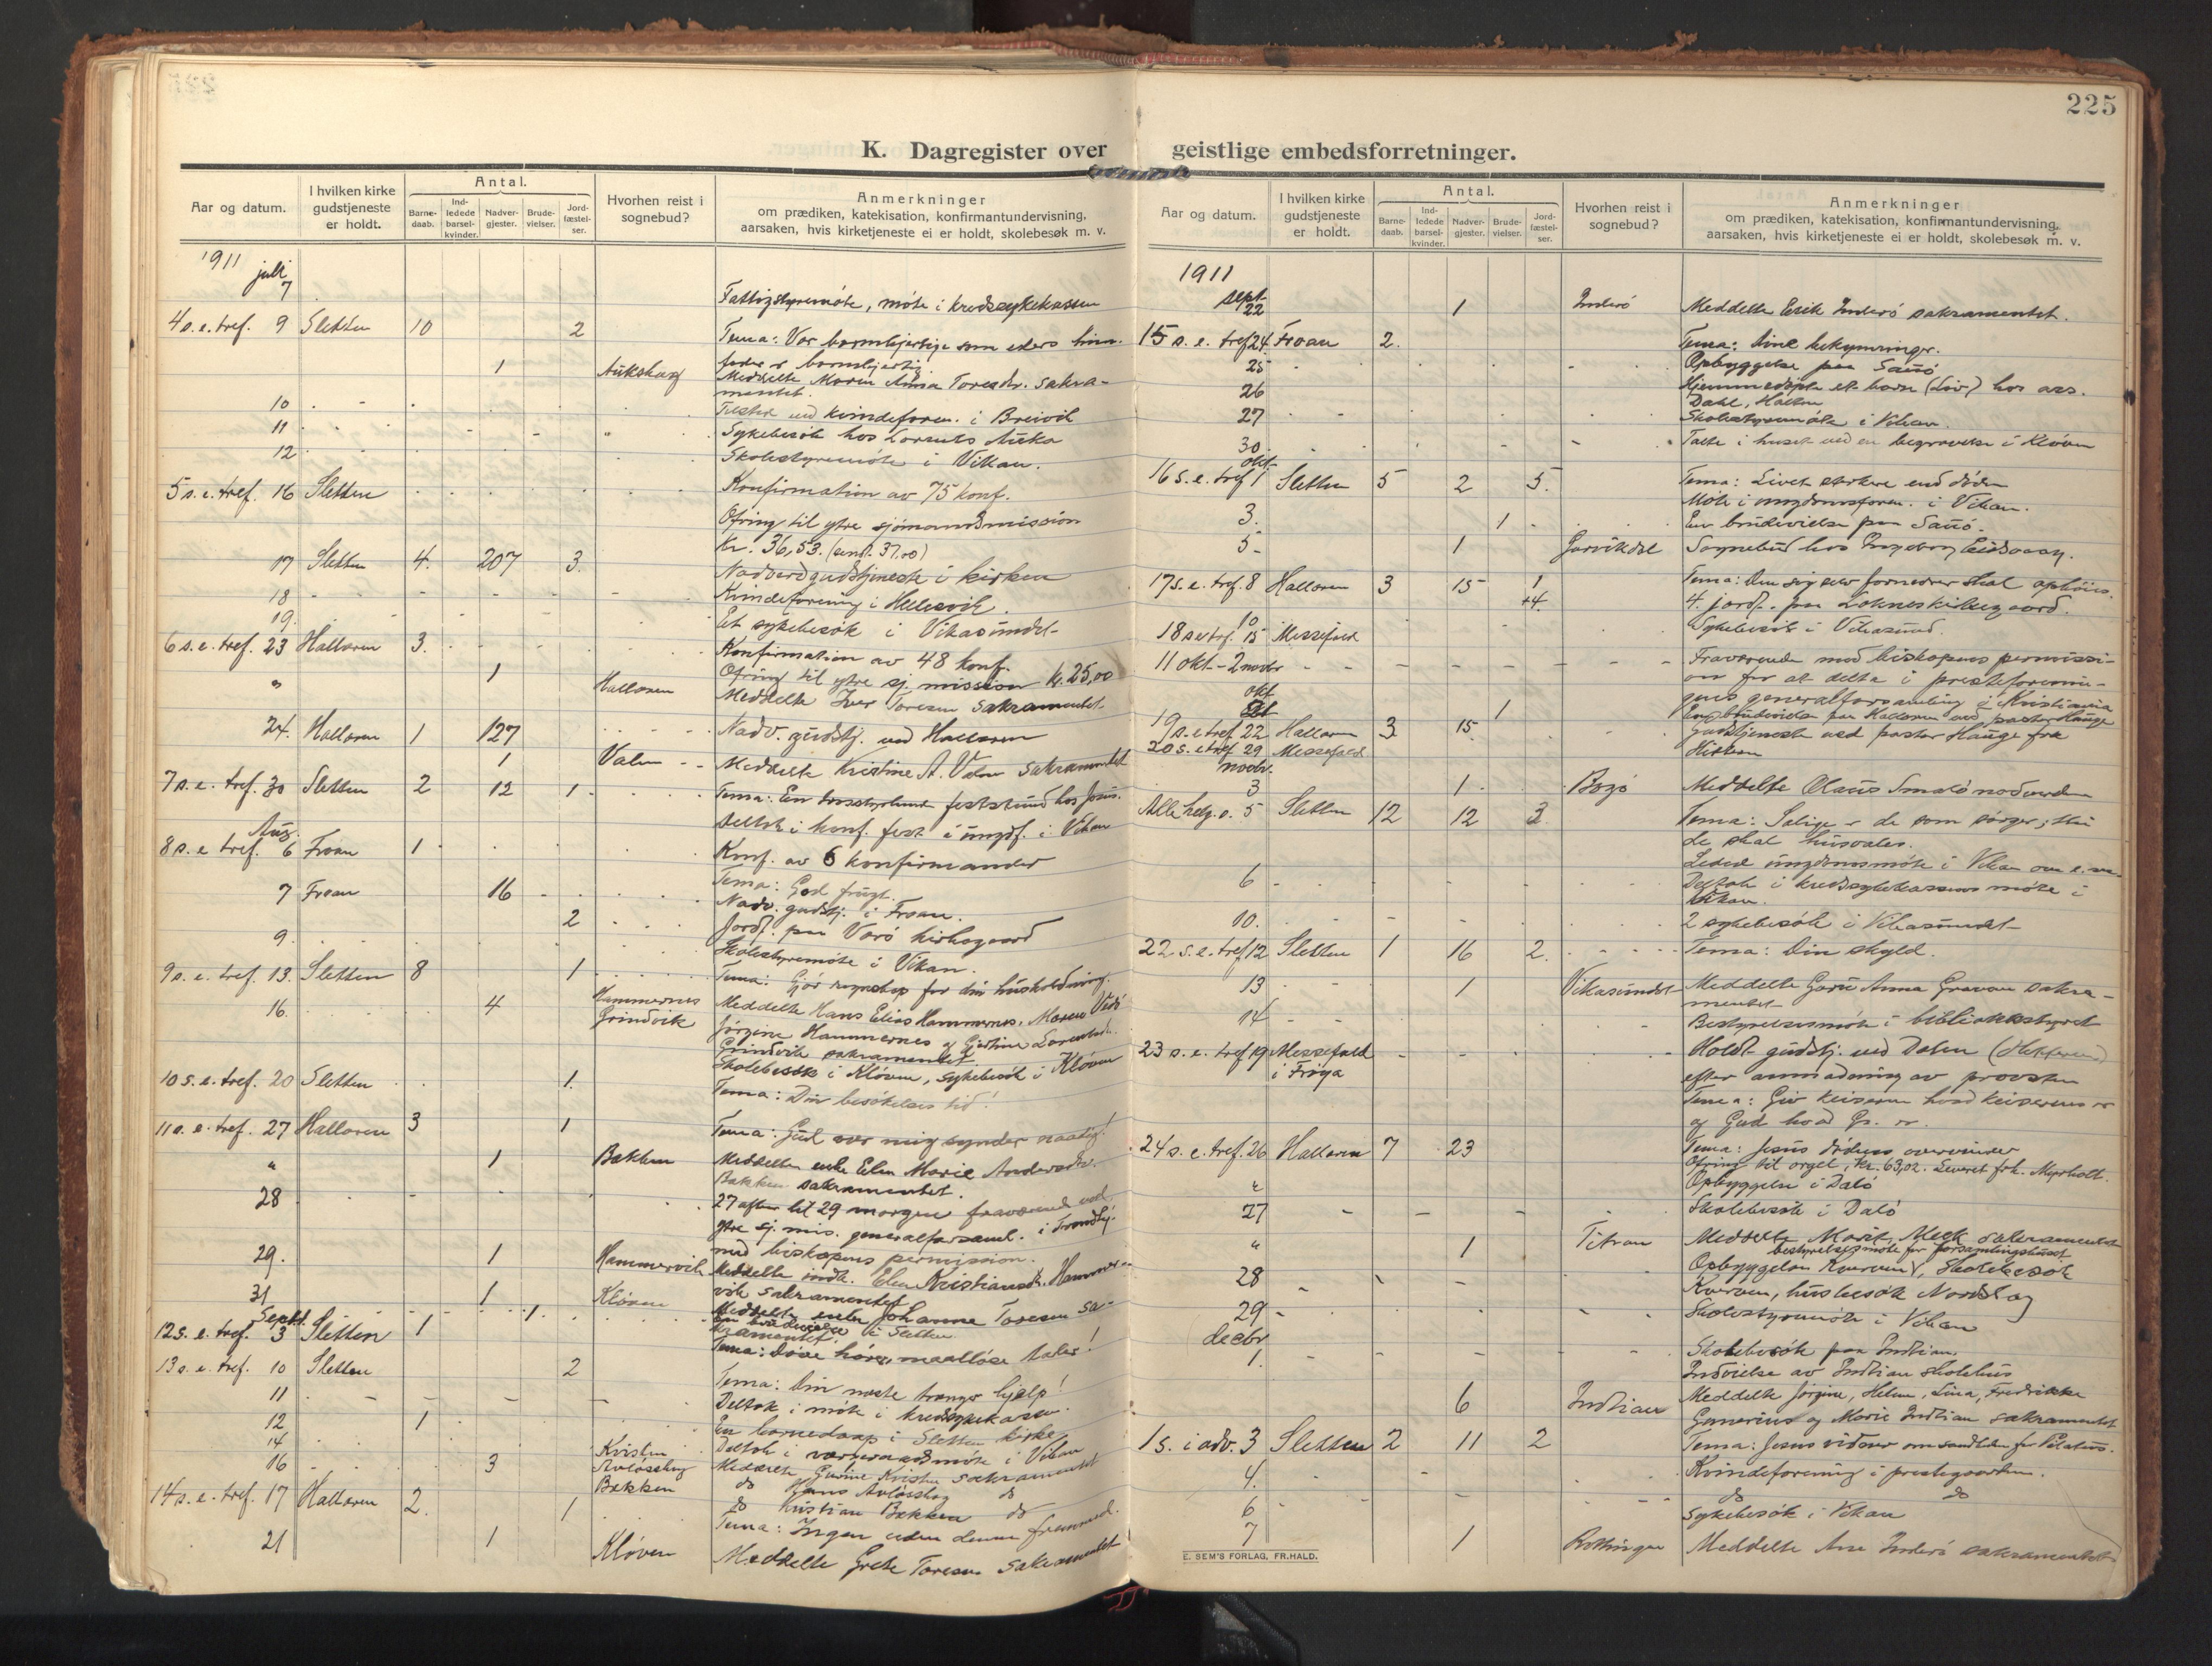 225
K. Dagregister over geistlige embedsforretninger.
Aar og datum.
I hvilken kirke gudstjeneste er holdt.
Antal.
Barne-daab.
Ind-ledede barsel-kvinder.
Nadver-gjester.
Brude-vielser.
Jord-fæstel-ser.
Hvorhen reist i sognebud?
Anmerkninger
om prædiken, katekisation, konfirmantundervisning,
aarsaken, hvis kirketjeneste ei er holdt, skolebesøk m. v.
1911 juli
7 Fattigstyremöte, möte i kredssykekassen
4 s. e. tref. 9 Sletten 10 2 Tema: Vær barmhjertige som eders him.
fader er barmhjertig
1 Aukskaug Meddelte Maren Anna Toresdtr. sakra-
mentet.
10 Fester ved kvindeforen. i Breivik
11 Sykebesök hos Lornts Auka
12 Skolestyremöte i Vikan.
5 s. e. tref. 16 Sletten Konfirmation av 75 konf.
Ofring til ytre sjömandsmission
Kr. 36,53. (sendt 37.00)
17 Sletten 4. 207 3. Nadverdgudstjeneste i kirken
18 Kvindeforening i Hellesvik.
19. Et sykebesök i Vikasundet
6 s. e. tref. 23 Halloren 3. Konfirmation av 48 konf.
Ofring til ytre sj. mission Kr. 25,00
" 1 Halloren Meddelte Iver Toresen sakramentet
24. Halloren 1 127 Nadv. gudstj. ved Halloren
1 Valen Meddelte Kristine A. Valen sakramentet
7 s. e. tref. 30 Sletten 2 12 1 Tema: En feststund hos Jesus.
Deltok i konf. fest i ungdf. i Vikan
Aug.
8 s. e tref. 6 Froan 1 Konf. av 6 konfirmander
Tema: God frugt.
7 Froan 16 Nadv. gudstj. i Froan.
2 Jordf. paa Vorö kirkegaard
9. Skolestyremöte i Vikan.
9 s. e. tref. 13. Sletten 8 1 Tema: Gjör regnskap for din husholdning.
16. 4 Hammernes Grindvik Meddelte Hans Elias Hammernes, Maren
Jörgine Hammernes og Gjertine
Grindvik sakramentet
Skolebesök i Klöven, sykebesök i Klöven
10 s. e. tref. 20 Sletten 1. Tema: Din besökelses tid!
11 s. e. tref. 27 Halloren 3 1 Tema: Gud vær mig synder naadig!
" 1 Bekken Meddelte enke Elen Marie Andersdtr.
Bekken sakramentet.
28 27 aften til 29 morgen fraværende ved
ytre sj. mis. generalforsaml. i Trondhj.
med biskopens permission.
29. 1 Hammervik Meddelte indk. Elen Kristiansdtr. Hammer-
vik sakramentet
31 1 Klöven Meddelte enke Johanne Toresen sa-
kramentet.
1. En brudevielse i Sletten
Septbr.
12 s. e. tref. 3 Sletten 1 Tema: Döve hörer, maallöse taler!
13 s. e. tref. 10 Sletten 2 Tema: Din næste trænger hjælp!
11 Deltok i möte i kredssykekassen.
12 1 En barnedaap i Sletten kirke
14 Deltok i vergeraadsmöte i Vikan
16 3 Kvisten Meddelte Gurine Kvisten sakramentet
Avlösshaug do Hans Avlösshaug do
Bekken do Kristian Bekken do
14 s. e. tref. 17 Halloren 2. 1 Tema: Ingen uden denne fremmed.
21 1 Klöven Meddelte Grete Toresen sakramentet
Aar og datum.
I hvilken kirke gudstjeneste er holdt.
Antal.
Barne-daab.
Ind-ledede barsel-kvinder.
Nadver-gjester.
Brude-vielser.
Jord-fæstel-ser.
Hvorhen reist i sognebud?
Anmerkninger
om prædiken, katekisation, konfirmantundervisning,
aarsaken, hvis kirketjeneste ei er holdt, skolebesøk m. v.
1911
sept.
22 1 Inderö Meddelte Erik Inderö sakramentet.
15 s. e. tref 24. Froan 2. Tema: Dine bekymringer.
25 Opbyggelse paa Sauö
26 Hjemmedöpte et barn (Liv) hos
Dahl, Halten
27 Skolestyremöte i Vikan.
30. Talte i huset ved en begravelse i Klöven
okt.
16 s. e. tref 1 Sletten 5 2 5. Tema: Livet sterkere end döden
Möte i ungdomsforen. i Vikan.
3. 1 En brudevielse paa Sauö.
5 1 Gjorvikdal Sognebud hos Ingeborg
17 s. e. tref. 8 Halloren 3 15 1 Tema: Den sig selv fornedrer skal ophöies.
+4. 4. jordf. paa kirkegaard.
10 Sykebesök i Vikasund.
18 s e tref. 15 Messefald
11 okt - 2 novbr Fraværende med biskopens permissi-
on for at delta i presteforenin-
gens generalforsamling i Kristiania
okt
1 En brudevielse paa Halloren ved pastor Hauge
19 s. e tref 22 Halloren 3 15 Gudstjeneste ved pastor Hauge fra
20 s. e tref 29 Messefald Hitteren
novbr.
3 1 Bogö Meddelte Olaus Smalö nadverden
Alle helg. s. 5 Sletten 12 12 3. Tema: Salige er de som sörger; thi
de skal husvales.
Ledede ungdomsmöte i Vikan om e.m.
6 Deltok i kredssykekassens möte i
Vikan.
10. 2 sykebesök i Vikasundet
22 s. e. tref 12 Sletten 1 16 2. Tema: Din skyld.
13 1 Vikasundet Meddelte Guru Anna Gravan sakra-
mentet
14 Bestyrelsesmöte i biblioteksstyret
23 s. e. tref 19 Messefald i Fröya Holdt gudstj. ved Dalen (Hitteren)
efter anmodning av provsten
Tema: Giv keiseren hvad keiserens er
og Gud hvad Gs. er.
24 s. e. tref. 26 Halloren 7 23 Tema: Jesus dödens overvinder
Ofring til orgel, kr. 63,02. Leveret frk. Myrholt.
" Opbyggelse i Dalö
27 Skolebesök i Dalö
" 1 Titran Meddelte Marit Meek sakramentet
bestyrelsesmöte for forsamlingshuset
28 Opbyggelse Kverven, Skolebesök
Kverven, husbesök Nordskag
29 Skolestyremöte i Vikan
decbr
1. Skolebesök paa Indtian.
Indvielse av Indtian skolehus
6 Indtian Meddelte Jörgine, Helene, Lina, Fredrikke
Gunerius og Marie Indtian sakramentet
1 s. i adv. 3 Sletten 2 11 2 Tema: Jesus vidner om sandheden for Pilatus.
4. Kvindeforening i prestegaarden.
6 do do
sykebesök i Vikan
7 1 Rottingen Meddelte Ane Inderö sakramentet
E. SEM'S FORLAG, FR.HALD.